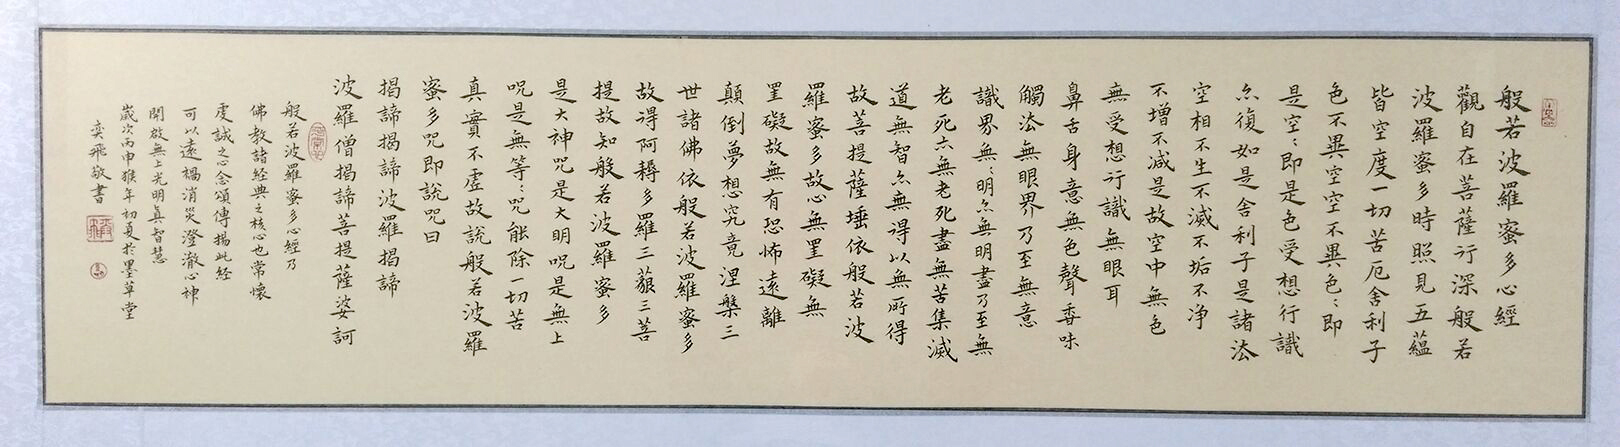 般若波羅蜜多心經
觀自在菩薩行深般若
波羅蜜多時照見五蘊
皆空度一切苦厄舍利子
色不異空空不異色〻即
是空〻即是色受想行識
亦復如是舍利子是諸法
空相不生不滅不垢不淨
不增不減是故空中無色
無受想行識無眼耳
鼻舌身意無色聲香味
觸法無眼界乃至無意
識界無〻明亦無明盡乃至無
老死亦無老死盡無苦集滅
道無智亦無得以無所得
故菩提薩埵依般若波
羅蜜多故心無罣礙無
罣礙故無有恐怖遠離
顛倒夢想究竟涅槃三
世諸佛依般若波羅蜜多
故得阿耨多羅三藐三菩
提故知般若波羅蜜多
是大神咒是大明咒是無上
咒是無等〻咒能除一切苦
真實不虛故說般若波羅
蜜多咒即說咒曰
揭諦揭諦波羅揭諦
波羅僧揭諦菩提薩婆訶
般若波羅蜜多心經乃
佛教諸經典之核心也常懷
虔誠之心念頌傳揚此經
可以遠禍消災澄澈心神
開啟無上光明真智慧
歲次丙申猴年初夏於墨草堂
奕飛敬書